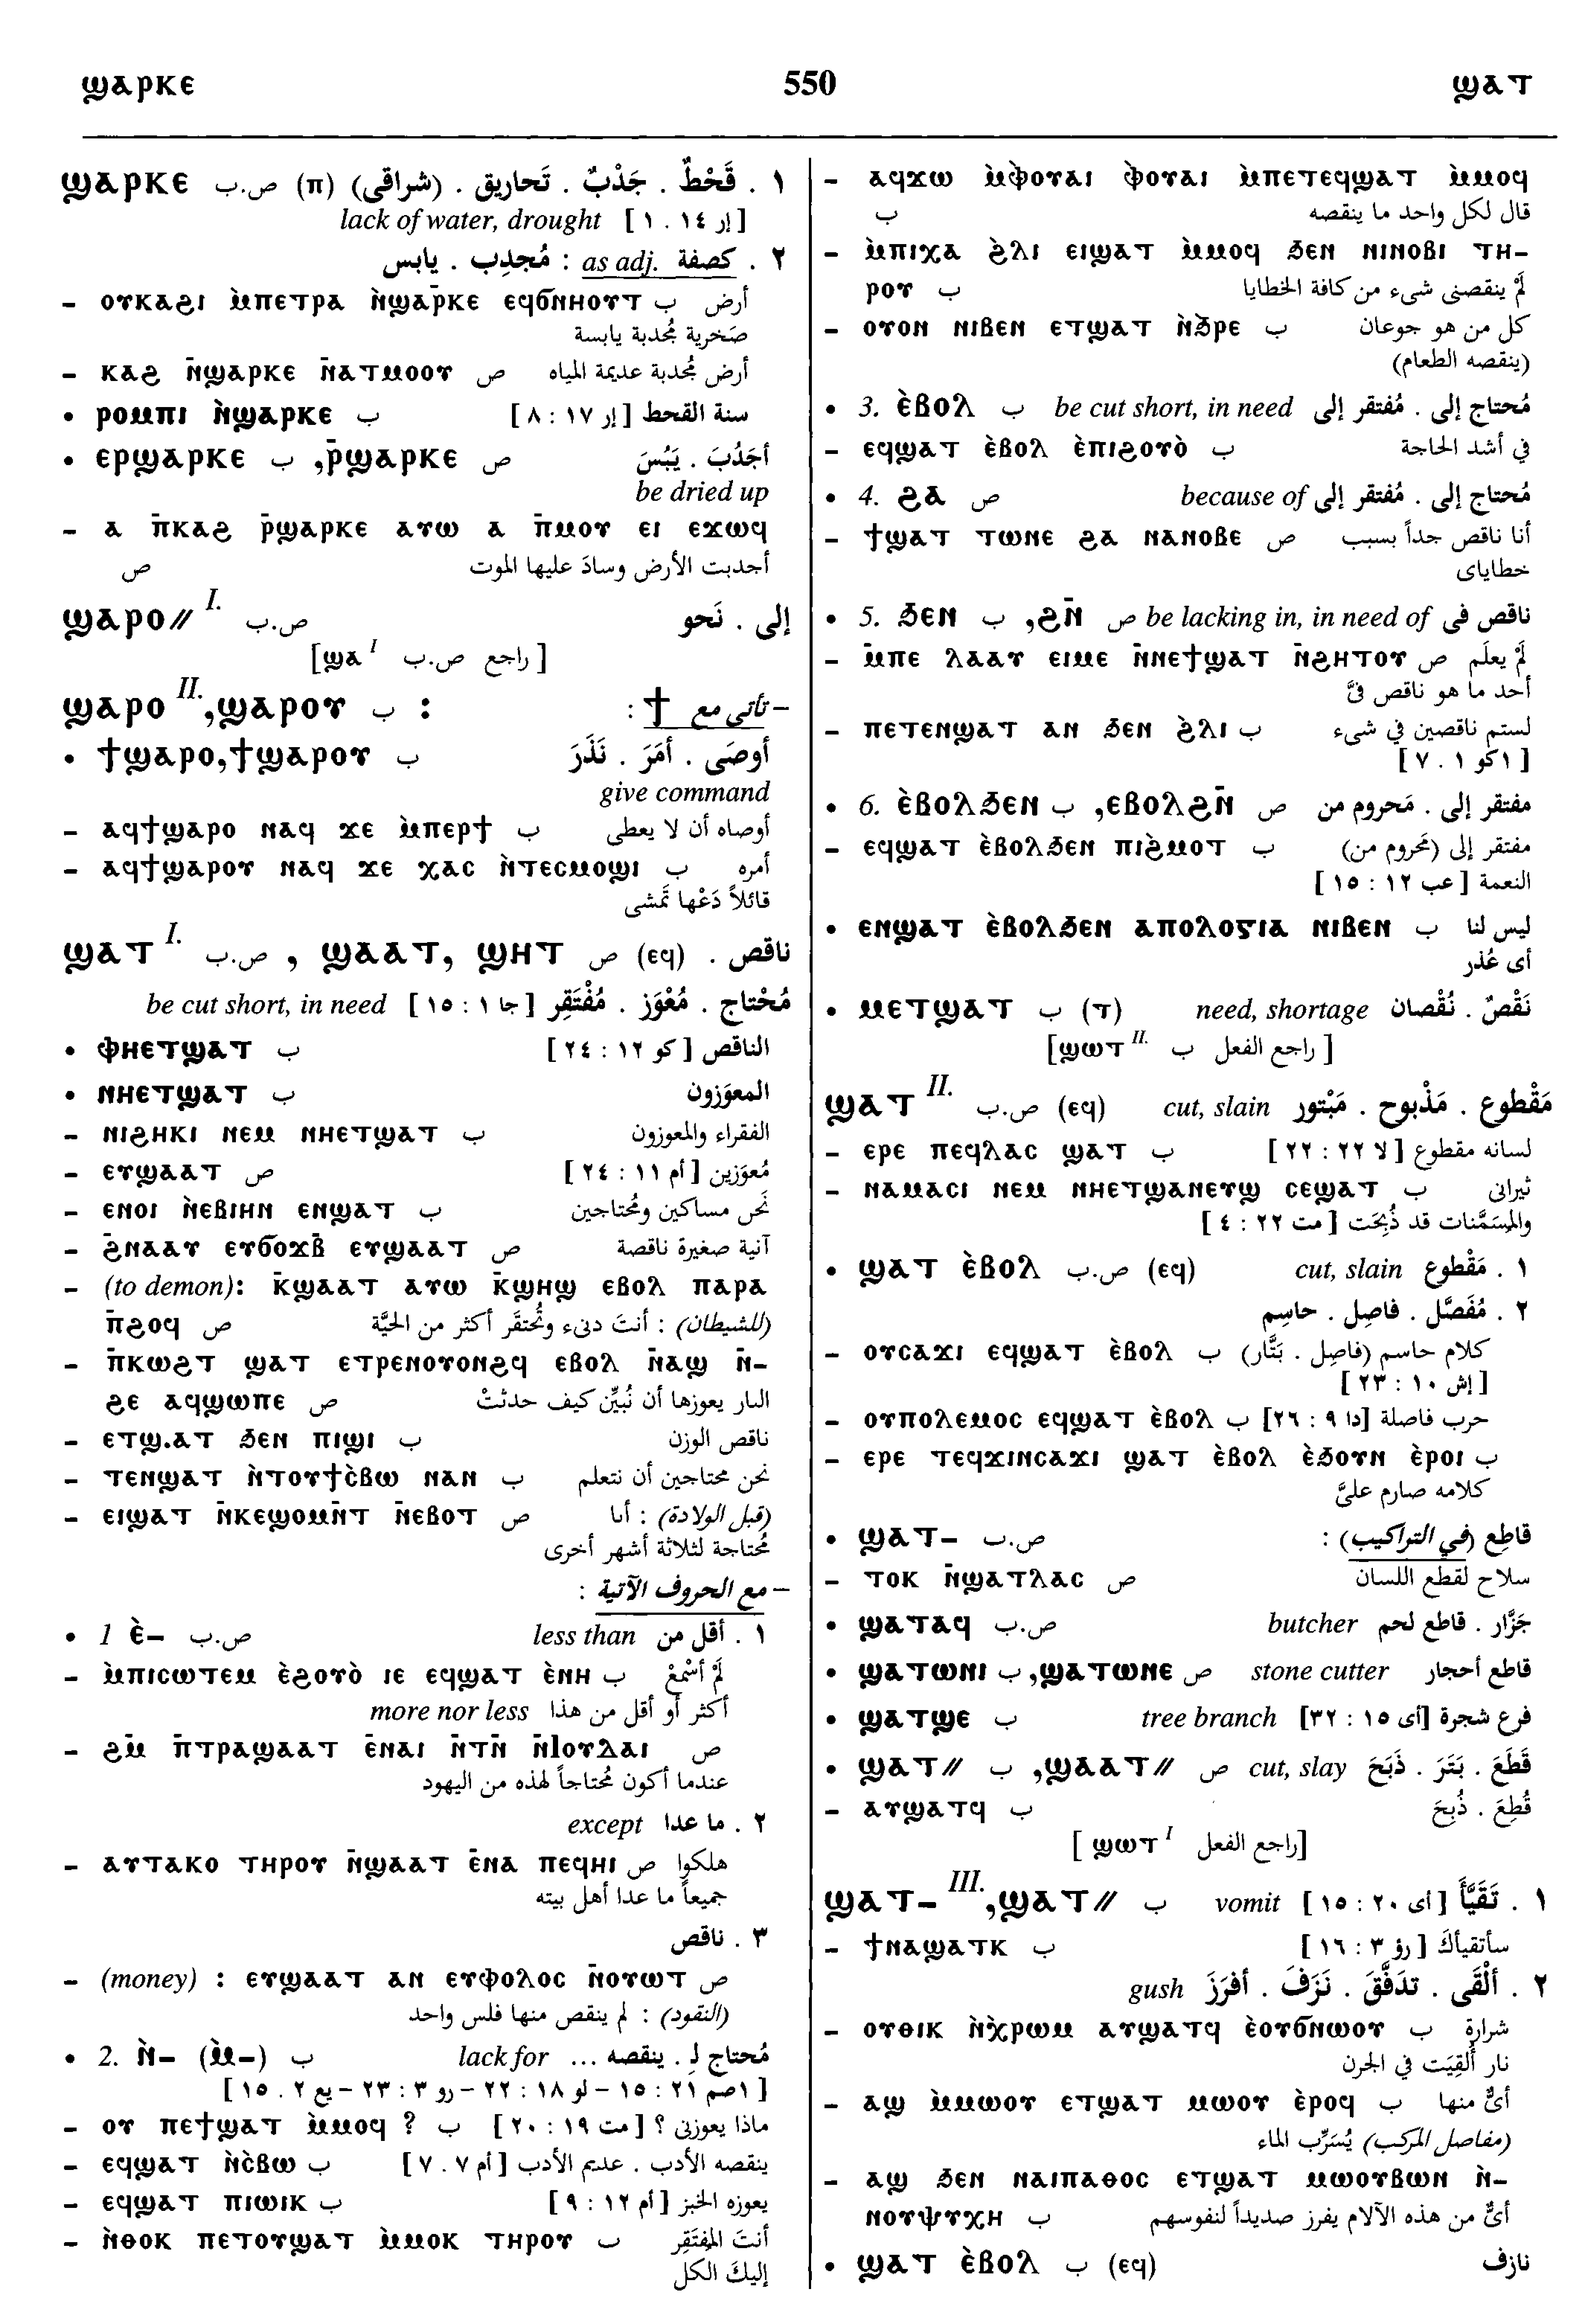 ϣⲁⲣⲕⲉ 550 ϣⲁⲧ
ϣⲁⲣⲕⲉ ص.ب (ⲡ) ١ . قَحْطٌ . جَدْبٌ . تَحاريق . (شراقى)
lack of water, drought [إر ١٤ . ١]
٢ . كصفة as adj. : مُجدِب . يابس
– ⲟⲩⲕⲁϩⲓ ⲙ̀ⲡⲉⲧⲣⲁ ⲛ̀ϣⲁⲣⲕⲉ ⲉϥϭⲛⲏⲟⲩⲧ ب أرض
صَخرية مُجدبة يابسة
– ⲕⲁϩ ⲛ̄ϣⲁⲣⲕⲉ ⲛ̄ⲁⲧⲙⲟⲟⲩ ص أرض مُجدبة عديمة المياه
• ⲣⲟⲙⲡⲓ ⲛ̀ϣⲁⲣⲕⲉ ب سنة القحط [إر ١٧ : ٨]
• ⲉⲣϣⲁⲣⲕⲉ ب ,ⲣ̄ϣⲁⲣⲕⲉ ص أجَدُبَ . يَبُسَ
be dried up
– ⲁ ⲡ̄ⲕⲁϩ ⲣ̄ϣⲁⲣⲕⲉ ⲁⲩⲱ ⲁ ⲡ̄ⲙⲟⲩ ⲉⲓ ⲉϫⲱϥ
ص أجدبت الأرض وسادَ عليها الموت
ϣⲁⲣⲟ// I. ص.ب إلى . نَحو
[راجع ص.ب ϣⲁ I]
ϣⲁⲣⲟ II.,ϣⲁⲣⲟⲩ ب : – تأتى مع ϯ :
• ϯϣⲁⲣⲟ,ϯϣⲁⲣⲟⲩ ب أوصَى . أمَرَ . نَذَرَ
give command
– ⲁϥϯϣⲁⲣⲟ ⲛⲁϥ ϫⲉ ⲙ̀ⲡⲉⲣϯ ب أوصاه أن لا يعطى
– ⲁϥϯϣⲁⲣⲟⲩ ⲛⲁϥ ϫⲉ ⲭⲁⲥ ⲛ̀ⲧⲉⲥⲙⲟϣⲓ ب أمره
قائلاً دَعْها تَمشى
ϣⲁⲧ I. ص.ب , ϣⲁⲁⲧ, ϣⲏⲧ ص (ⲉϥ) ناقص .
مُحْتاج . مُعْوَز . مُفْتَقِر [جا ١ : ١٥] be cut short, in need
• ⲫⲏⲉⲧϣⲁⲧ ب الناقص [كو ١٢ : ٢٤]
• ⲛⲏⲉⲧϣⲁⲧ ب المعوَزون
– ⲛⲓϩⲏⲕⲓ ⲛⲉⲙ ⲛⲏⲉⲧϣⲁⲧ ب الفقراء والمعوزون
– ⲉⲩϣⲁⲁⲧ ص مُعوَزين [أم ١١ : ٢٤]
– ⲉⲛⲟⲓ ⲛ̀ⲉⲃⲓⲏⲛ ⲉⲛϣⲁⲧ ب نَحن مساكين ومُحتاجين
– ϩ̄ⲛⲁⲁⲩ ⲉⲩϭⲟϫⲃ̄ ⲉⲩϣⲁⲁⲧ ص آنية صغيرة ناقصة
– (to demon): ⲕ̄ϣⲁⲁⲧ ⲁⲩⲱ ⲕ̄ϣⲏϣ ⲉⲃⲟⲗ ⲡⲁⲣⲁ
ⲡ̄ϩⲟϥ ص (للشيطان) : أنتَ دنىء وتُحتقَر أكثر من الحيَّة
– ⲡ̄ⲕⲱϩⲧ ϣⲁⲧ ⲉⲧⲣⲉⲛⲟⲩⲟⲛϩϥ ⲉⲃⲟⲗ ⲛ̄ⲁϣ ⲛ̄–
ϩⲉ ⲁϥϣⲱⲡⲉ ص النار يعوزها أن نُبيِّن كيف حدثتْ
– ⲉⲧϣ.ⲁⲧ ϧⲉⲛ ⲡⲓϣⲓ ب ناقص الوزن
– ⲧⲉⲛϣⲁⲧ ⲛ̀ⲧⲟⲩϯⲥ̀ⲃⲱ ⲛⲁⲛ ب نحن محتاجين أن نتعلم
– ⲉⲓϣⲁⲧ ⲛ̄ⲕⲉϣⲟⲙⲛ̄ⲧ ⲛ̄ⲉⲃⲟⲧ ص (قبل الولادة) : أنا
مُحتاجة لثلاثة أشهر أخرى
– مع الحروف الآتية :
• 1 ⲉ̀– ص.ب ١ . أقل من less than
– ⲙ̀ⲡⲓⲥⲱⲧⲉⲙ ⲉ̀ϩⲟⲩⲟ̀ ⲓⲉ ⲉϥϣⲁⲧ ⲉ̀ⲛⲏ ب لَمْ أسْمَعْ
أكثر أو أقل من هذا more nor less
– ϩⲙ̄ ⲡ̄ⲧⲣⲁϣⲁⲁⲧ ⲉ̄ⲛⲁⲓ ⲛ̄ⲧⲛ̄ ⲛ̄ⲓⲟⲩⲇⲁⲓ ص
عندما أكون مُحتاجاً لهذه من اليهود
٢ . ما عدا except
– ⲁⲩⲧⲁⲕⲟ ⲧⲏⲣⲟⲩ ⲛ̄ϣⲁⲁⲧ ⲉ̄ⲛⲁ ⲡⲉϥⲏⲓ ص هلكوا
جميعاً ما عدا أهل بيته
٣ . ناقص
– (money) : ⲉⲩϣⲁⲁⲧ ⲁⲛ ⲉⲩⲫⲟⲗⲟⲥ ⲛ̄ⲟⲩⲱⲧ ص
(النقود) : لم ينقص منها فلس واحد
• 2. ⲛ̀– (ⲙ̀–) ب مُحتاج لـِ . ينقصه ... lack for
[١صم ٢١ : ١٥ – لو ١٨ : ٢٢ – رو ٣ : ٢٣ – يع ٢ . ١٥]
– ⲟⲩ ⲡⲉϯϣⲁⲧ ⲙ̀ⲙⲟϥ ? ب ماذا يعوزنى ؟ [مت ١٩ : ٢٠]
– ⲉϥϣⲁⲧ ⲛ̀ⲥ̀ⲃⲱ ب ينقصه الأدب . عديم الأدب [أم ٧ . ٧]
– ⲉϥϣⲁⲧ ⲡⲓⲱⲓⲕ ب يعوزه الخبز [أم ١٢ : ٩]
– ⲛ̀ⲑⲟⲕ ⲡⲉⲧⲟⲩϣⲁⲧ ⲙ̀ⲙⲟⲕ ⲧⲏⲣⲟⲩ ب أنتَ المفتَقِر
إليكَ الكل
– ⲁϥϫⲱ ⲙ̀ⲫⲟⲩⲁⲓ ⲫⲟⲩⲁⲓ ⲙ̀ⲡⲉⲧⲉϥϣⲁⲧ ⲙ̀ⲙⲟϥ
ب قال لكل واحد ما ينقصه
– ⲙ̀ⲡⲓⲭⲁ ϩ̀ⲗⲓ ⲉⲓϣⲁⲧ ⲙ̀ⲙⲟϥ ϧⲉⲛ ⲛⲓⲛⲟⲃⲓ ⲧⲏ–
ⲣⲟⲩ ب لَمْ ينقصنى شىء من كافة الخطايا
– ⲟⲩⲟⲛ ⲛⲓⲃⲉⲛ ⲉⲧϣⲁⲧ ⲛ̀ϧ̀ⲣⲉ ب كل من هو جوعان
(ينقصه الطعام)
• 3. ⲉ̀ⲃⲟⲗ ب be cut short, in need مُحتاج إلى . مُفتقر إلى
– ⲉϥϣⲁⲧ ⲉ̀ⲃⲟⲗ ⲉ̀ⲡⲓϩⲟⲩⲟ̀ ب في أشد الحاجة
• 4. ϩⲁ ص because of مُحتاج إلى . مُفتقر إلى
– ϯϣⲁⲧ ⲧⲱⲛⲉ ϩⲁ ⲛⲁⲛⲟⲃⲉ ص أنا ناقص جداً بسبب
خطاياى
• 5. ϧⲉⲛ ب ,ϩⲛ̄ ص be lacking in, in need of ناقص فى
– ⲙ̄ⲡⲉ ⲗⲁⲁⲩ ⲉⲓⲙⲉ ⲛ̄ⲛⲉϯϣⲁⲧ ⲛ̄ϩⲏⲧⲟⲩ ص لَمْ يعلَم
أحد ما هو ناقص فىَّ
– ⲡⲉⲧⲉⲛϣⲁⲧ ⲁⲛ ϧⲉⲛ ϩ̀ⲗⲓ ب لستم ناقصين في شىء
[١كو ١ . ٧]
• 6. ⲉ̀ⲃⲟⲗϧⲉⲛ ب ,ⲉⲃⲟⲗϩⲛ̄ ص مفتقر إلى . مَحروم من
– ⲉϥϣⲁⲧ ⲉ̀ⲃⲟⲗϧⲉⲛ ⲡⲓϩ̀ⲙⲟⲧ ب مفتقر إلى (مَحروم من)
النعمة [عب ١٢ : ١٥]
• ⲉⲛϣⲁⲧ ⲉ̀ⲃⲟⲗϧⲉⲛ ⲁⲡⲟⲗⲟⲅⲓⲁ ⲛⲓⲃⲉⲛ ب ليس لنا
أى عُذر
• ⲙⲉⲧϣⲁⲧ ب (ⲧ) need, shortage نَقْصٌ . نُقْصان
[راجع الفعل ب ϣⲱⲧ II.]
ϣⲁⲧ II. ص.ب (ⲉϥ) cut, slain مَقْطوع . مَذْبوح . مَبْتور
– ⲉⲣⲉ ⲡⲉϥⲗⲁⲥ ϣⲁⲧ ب لسانه مقطوع [لا ٢٢ : ٢٢]
– ⲛⲁⲙⲁⲥⲓ ⲛⲉⲙ ⲛⲏⲉⲧϣⲁⲛⲉⲩϣ ⲥⲉϣⲁⲧ ب ثيرانى
والمسَمَّنات قد ذُبِحَت [مت ٢٢ : ٤]
• ϣⲁⲧ ⲉ̀ⲃⲟⲗ ص.ب (ⲉϥ) cut, slain ١ . مَقْطوع
٢ . مُفَصَّل . فاصِل . حاسِم
– ⲟⲩⲥⲁϫⲓ ⲉϥϣⲁⲧ ⲉ̀ⲃⲟⲗ ب كلام حاسم (فاصِل . بَتَّار)
[إش ١٠ : ٢٣]
– ⲟⲩⲡⲟⲗⲉⲙⲟⲥ ⲉϥϣⲁⲧ ⲉ̀ⲃⲟⲗ ب حرب فاصلة [دا ٩ : ٢٦]
– ⲉⲣⲉ ⲧⲉϥϫⲓⲛⲥⲁϫⲓ ϣⲁⲧ ⲉ̀ⲃⲟⲗ ⲉ̀ϧⲟⲩⲛ ⲉ̀ⲣⲟⲓ ب
كلامه صارم علىَّ
• ϣⲁⲧ– ص.ب قاطِع (في التراكيب) :
– ⲧⲟⲕ ⲛ̄ϣⲁⲧⲗⲁⲥ ص سلاح لقطع اللسان
• ϣⲁⲧⲁϥ ص.ب butcher جَزَّار . قاطع لحم
• ϣⲁⲧⲱⲛⲓ ب ,ϣⲁⲧⲱⲛⲉ ص stone cutter قاطع أحجار
• ϣⲁⲧϣⲉ ب tree branch فرع شجرة [أى ١٥ : ٣٢]
• ϣⲁⲧ// ب ,ϣⲁⲁⲧ// ص cut, slay قَطَعَ . بَتَرَ . ذَبَحَ
– ⲁⲩϣⲁⲧϥ ب قُطِعَ . ذُبِحَ
[راجع الفعل ϣⲱⲧ I]
ϣⲁⲧ– III.,ϣⲁⲧ// ب vomit ١ . تَقَيَّأَ [أى ٢٠ : ١٥]
– ϯⲛⲁϣⲁⲧⲕ ب سأتقيأكَ [رؤ ٣ : ١٦]
٢ . ألْقَى . تدَفَّقَ . نَزَفَ . أفرَزَ gush
– ⲟⲩⲑⲓⲕ ⲛ̀ⲭ̀ⲣⲱⲙ ⲁⲩϣⲁⲧϥ ⲉ̀ⲟⲩϭⲛⲱⲟⲩ ب شرارة
نار أُلقِيَت في الجرن
– ⲁϣ ⲙ̀ⲙⲱⲟⲩ ⲉⲧϣⲁⲧ ⲙⲱⲟⲩ ⲉ̀ⲣⲟϥ ب أىٌّ منها
(مفاصل المركب) يُسَرِّب الماء
– ⲁϣ ϧⲉⲛ ⲛⲁⲓⲡⲁⲑⲟⲥ ⲉⲧϣⲁⲧ ⲙⲱⲟⲩⲃⲱⲛ ⲛ̀–
ⲛⲟⲩⲯⲩⲭⲏ ب أىٌّ من هذه الآلام يفرز صديداً لنفوسهم
• ϣⲁⲧ ⲉ̀ⲃⲟⲗ ب (ⲉϥ) نازف